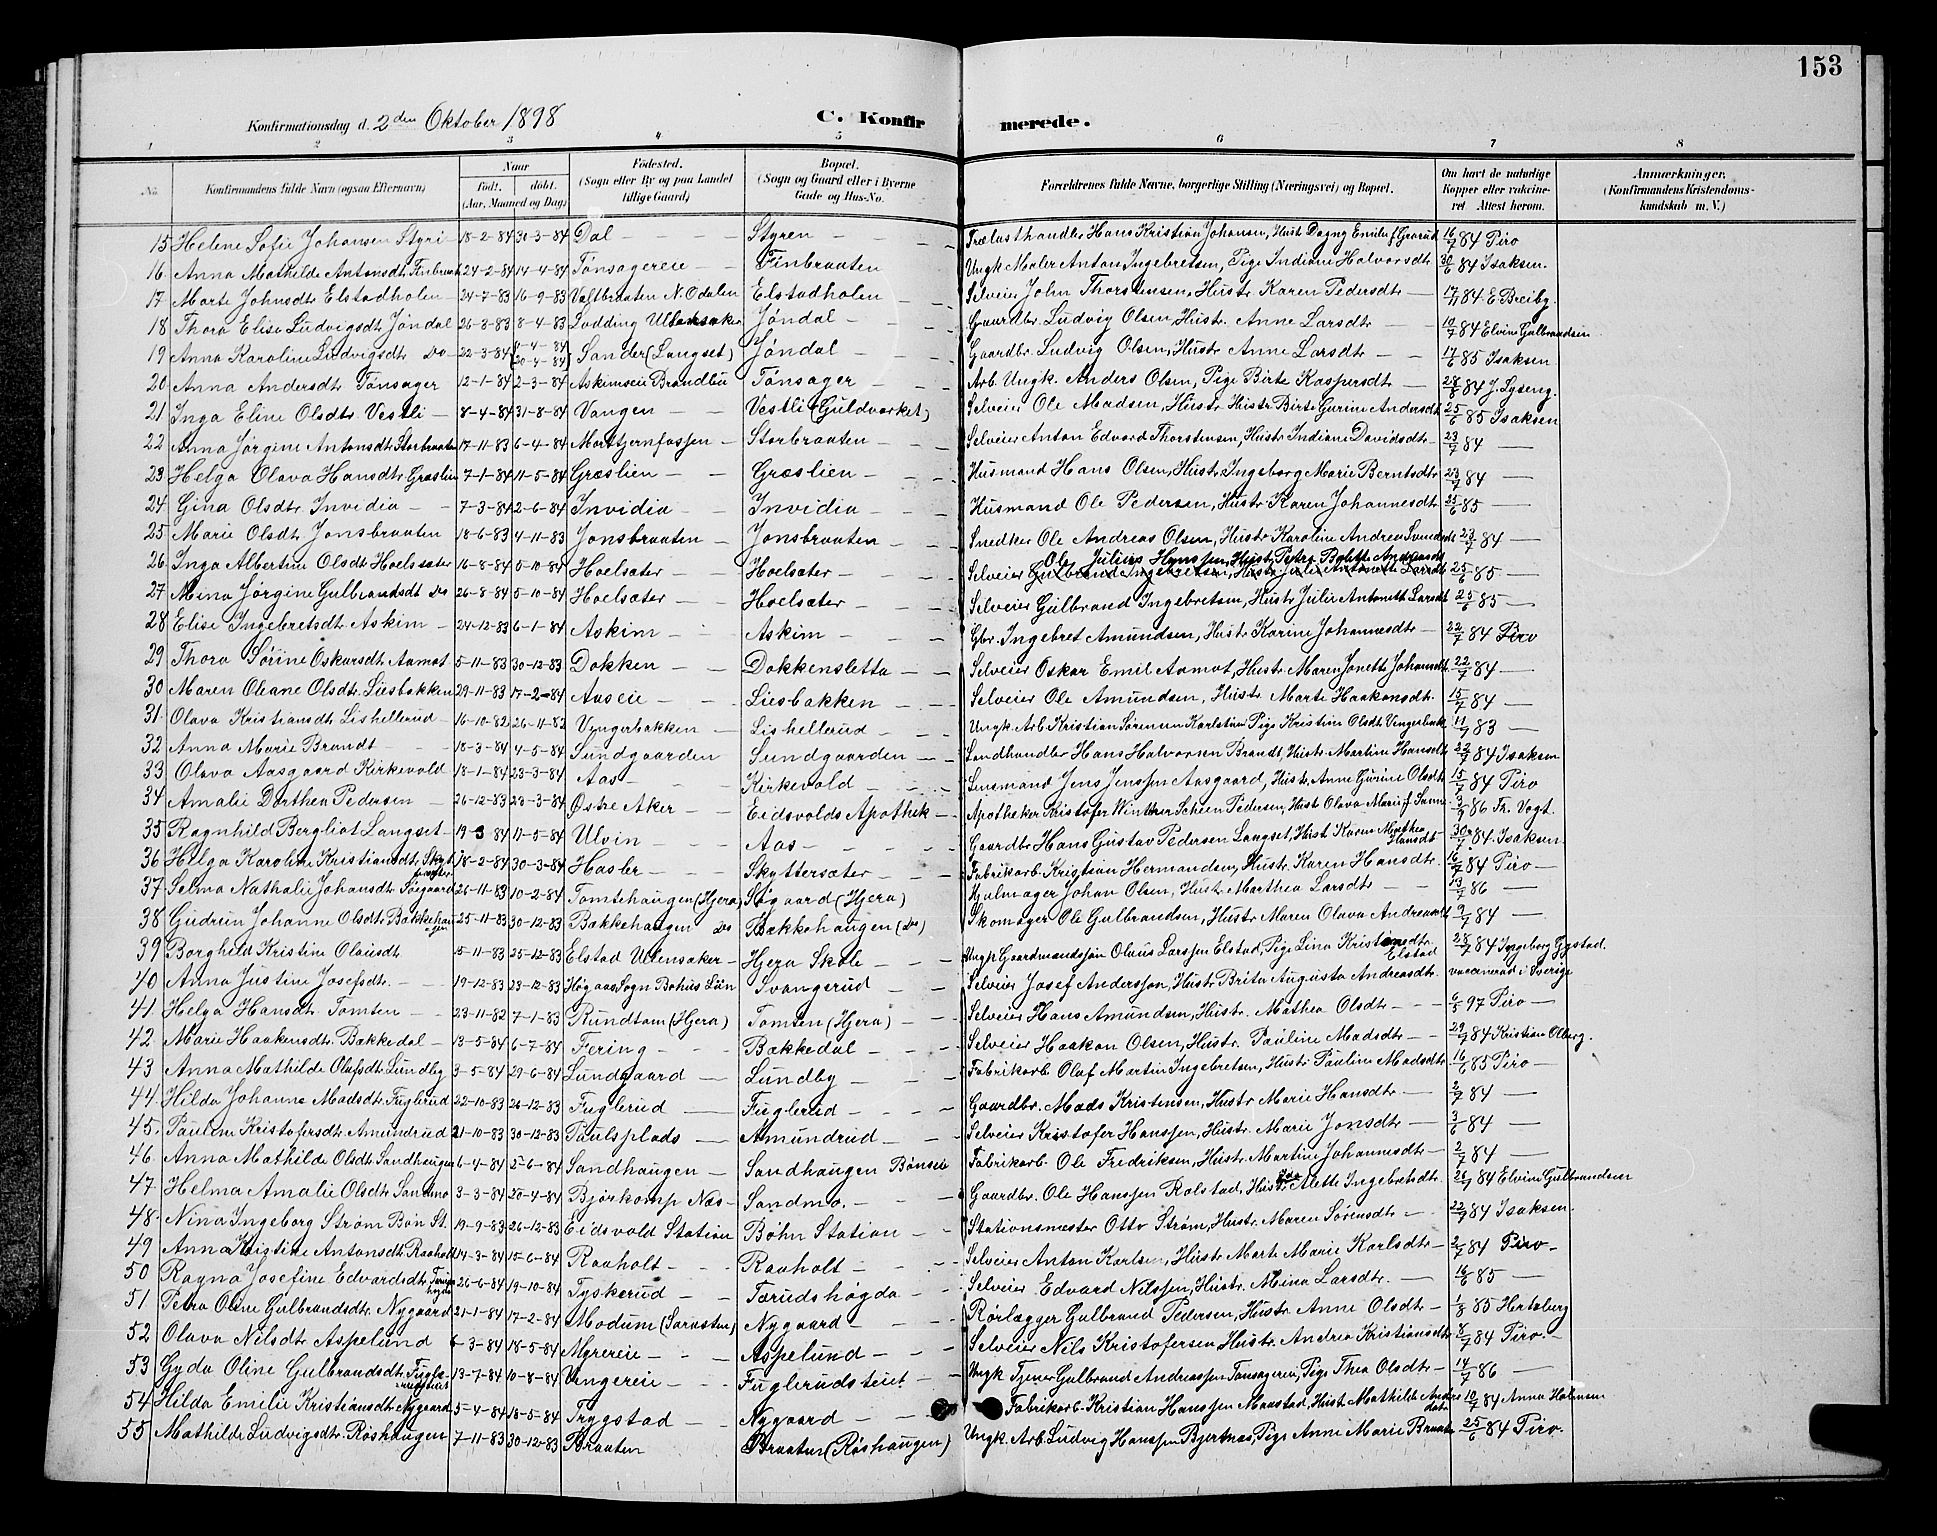 153
Konfirmationsdag d. 2den Oktober 1898
C. Konfir merede.
1 2 3 4 5 6 7 8
No. Konfirmandens fulde Navn (ogsaa Efternavn) Naar født. døbt. (Aar, Maaned og Dag) Fødested. (Sogn eller By og paa Landet tillige Gaard) Bopæl. (Sogn og Gaard eller i Byerne Gade og Hus-No. Forældrenes fulde Navne, borgerlige Stilling (Næringsvei) og Bopæl. Om havt de naturlige Kopper eller vakcineret. Attest herom. Anmærkninger. (Konfirmandens Kristendomskundskab m. V.)
15 Helene Sofie Johansen Styri 18-2-84 30-3-84 Dal Styren Trælasthandler Hans Kristian Johansen, Hust Dagny Emilie f Gaarud 16/7 84 Piro
16 Anna Mathilde Antonsdtr Finbraat 24-2-84 14-4-84 Tønsagereie Finbraaten Ungk Maler Anton Ingebretsen, Pige Indiane Halvorsdtr 30/6 84 Isaksen.
17 Marte Johnsdtr Elstadholen 24-7-83 16-9-83 Valtbraaten N. Odalen Elstadholen Selveier John Thorstensen, Hustr Karen Pedersdtr 17/11 84 E Breiby.
18 Thora Elise Ludvigsdtr Jøndal 26-3-83 8-4-83 Lodding Ullensaker Jøndal Gaardbr. Ludvig Olsen, Hustr. Anne Larsdtr 10/7 84 Elvine Gulbrandsen
19 Anna Karoline Ludvigsdtr Do 22-3-84 (8-4-84 20-4-84) Sander (Langset) Jøndal Gaardbr. Ludvig Olsen, Hustr Anne Larsdtr 17/6 85 Isaksen
20 Anna Andersdtr Tønsager 12-1-84 2-3-84 Askimseie Brandbu Tønsager Arb. Ungk. Anders Olsen, Pige Birte Kaspersdtr 28/8 84 J. Lyseng.
21 Inga Eline Olsdtr Vestli 8-4-84 31-8-84 Vangen Vestli (Guldværket) Selveier Ole Madsen, Hustr. Hustr Birte Gurine Andersdt 25/6 85 Isaksen
22 Anna Jørgine Antonsdtr Storbraaten 17-11-83 6-4-84 Morttjernfossen Storbraaten Selveier Anton Edvard Thorstensen, Hustr Indiane Davidsdtr 23/7 84
23 Helga Olava Hansdtr Græslien 7-1-84 11-5-84 Græslien Græslien Husmand Hans Olsen, Hustr Ingeborg Marie Berntsdtr 23/7 84
24 Gina Olsdtr Invidia 7-3-84 2-6-84 Invidia Invidia Husmand Ole Pedersen, Hustr Karen Johannesdtr 25/6 85
25 Marie Olsdtr Jonsbraaten 18-6-83 4-11-83 Jonsbraaten Jonsbraaten Snedker Ole Andreas Olsen, Hustr Karoline Andrea Svendsdt 23/7 84
Ole Julius Hansen, Hustr. Petra Bolette Andreasdt
26 Inga Albertine Olsdtr Hoelsæter 16-8-84 5-10-84 Hoelsæter Hoelsæter Selveier Gulbrand Ingebretsen, Hustr Julie Antonette Larsdt 25/6 85
27 Mina Jørgine Gulbrandsdt Do 26-8-84 5-10-84 Hoelsæter Hoelsæter Selveier Gulbrand Ingebretsen, Hustr Julie Antonett Larsdt 25/6 85
28 Elise Ingebretsdtr Askim 24-12-83 6-1-84 Askim Askim Gbr. Ingebret Amundsen, Hustr Karine Johannesdtr 22/7 84 Piro
29 Thora Sørine Oskarsdtr Aamot 5-11-83 30-12-83 Dokken Dokkensletta Selveier Oskar Emil Aamot, Hustr Maren Jonette Johannsdt 22/7 84
30 Maren Oleane Olsdtr. Liesbakken 29-11-83 17-2-84 Aaseie Liesbakken Selveier Ole Amundsen, Hustr Marte Haakonsdtr. 15/7 84
31. Olava Kristiansdtr Lishellerud 16-10-82 26-11-82 Vengerbakken Lishellerud Ungk. Arb Kristian Sørensen Karlstuen Pige Kristine Olsdtr Vengerbak 11/7 83
32 Anna Marie Brandt 18-3-84 4-5-84 Sundgaarden Sundgaarden Landhandler Hans Halvorsen Brandt, Hustr. Martine Hansdt 22/7 84 Isaksen
33 Olava Aasgaard Kirkevold 18-1-84 23-3-84 Aas Kirkevold Lensmand Jens Jenssen Aasgaard, Hustr. Anne Gurine Olsdtr 15/7 84 Piro
34 Amalie Dorthea Pedersen 26-12-83 23-3-84 Østre Aker Eidsvolds Apothek Apotheker Kristofer Winther Scheen Pedersen, Hust Olava Marie f 3/9 86 Fr. Vogt.
35 Ragnhild Bergliot Langset 19-3 84 11-5-84 Ulvin Aas Gaardbr Hans Gustav Pedersen Langset, Hust Karen Mathea Hansdt 30/7 84. Isaksen
36 Helga Karoline Kristiansdtr Skyttersæter 18-2-84 30-3-84 Hasler Skyttersæter Fabrikarb. Kristian Hermandsen, Hustr. Karen Hansdtr. 16/7 84 Piro
37 Selma Nathalie Johansdtr Søgaard 26-11-83 10-2-84 Tomtehaugen (Hjera) Søgaard (Hjera) Hjulmager Johan Olsen, Hustr Marthea Larsdtr 13/7 86
38 Gudrun Johanne Olsdtr Bakkehaugen 25-11-83 30-12-83 Bakkehaugen Do Bækkehaugen (Do) Skomager Ole Gulbrandsen, Hustr Maren Olava Andreasdt 9/7 84
39 Borghild Kristine Olausdtr 5-11-83 25-12-83 Elstad Ullensaker Hjera Skole Ungk Gaardmandssøn Olaus Larssen Elstad, Pige Lina Kristiansdtr Elstad 28/7 84 Ingeborg Gystad.
40 Anna Justine Josefsdtr. 19-12-83 23-12-83 Høgaas Sogn Bohus Län Svangerud Selveier Josef Andersson, Hustr Brita Augusta Andreasdtr. vaccinerad i Sverige
41. Helga Hansdtr. Tomten 23-11-82 7-1-83 Rundtom (Hjera) Tomten (Hjera) Selveier Hans Amundsen, Hustr. Mathea Olsdtr 6/5 97 Piro
42. Marie Haakensdtr. Bækkedal 13-5-84 6-7-84 Fering Bækkedal Selveier Haakon Olsen, Hustr. Pauline Madsdtr 29/7 84 Kristian Olberg.
43 Anna Mathilde Olafsdtr. Lundby 3-5-84 29-6-84 Lundgaard Lundby Fabrikarb. Olaf Martin Ingebretsen, Hustr Pauline Madsdtr 16/6 85 Piro
44. Hilda Johanne Madsdtr. Fuglerud 22-10-83 26-12-83 Fuglerud Fuglerud Gaardbr. Mads Kristensen, Hustr Marie Hansdtr 2/7 84
45. Pauline Kristofersdtr Amundrud 21-10-83 30-12-83 Paulsplads Amundrud Selveier Kristofer Hanssen, Hustr. Marie Jonsdtr 3/6 84
46. Anna Mathilde Olsdtr. Sandhaugen 6-4-84 2-6-84 Sandhaugen Sandhaugen Bønseie Fabrikarb. Ole Fredriksen, Hustr Martine Johannesdtr 2/7 84
47. Helma Amalie Olsdtr. Sandmo 3-3-84 20-4-84 Bjørkomp Næs Sandmo. Gaardbr. Ole Hanssen Rolstad, Hustr Ida Alette Ingebretsdtr 26/7 84 Elvine Gulbrandsen
48. Nina Ingeborg Strøm Bøn St. 19-9-83 26-12-83 Eidsvold Station Bøhn Station Stationsmester Otto Strøm, Hustr. Maren Sørensdtr 22/7 84 Isaksen.
49 Anna Kristine Antonsdt Raaholt 14-3-84 15-6-84 Raaholt Raaholt Selveier Anton Karlsen, Hustr Marte Marie Karlsdtr 2/7 84 Piro
50 Ragna Josefine Edvardsdtr. Færudshøgda 26-6-84 19-10-84 Tyskerud Færudshøgda Selveier Edvard Nilssen, Hustr. Mina Larsdtr. 16/6 85
51. Petra Oline Gulbrandsdtr. Nygaard 21-1-84 17-2-84 Modum Nygaard Rørlægger Gulbrand Pedersen, Hustr Anne Olsdtr 1/8 85 Hertzberg
52 Olava Nilsdtr Aspelund 6-3-84 18-5-84 Myrereie Aspelund Selveier Nils Kristofersen Hustr. Andrea Kristiansdtr 8/7 84 Piro.
53 Gyda Oline Gulbrandsdtr. Fuglerudsteiet 13-7-84 10-8-84 Vengereie Fuglerudsteiet Ungk Tjener Gulbrand Andreassen Tønsagereie, Pige Thea Olsdtr 14/7 86
54 Hilda Emilie Kristiansdtr Nygaard 5-4-84 18-5-84 Trygstad Nygaard Fabrikarb. Kristian Hanssen Maastad, Hust. Mathilde Andersdtr 10/7 84 Anna Halvorsen
55 Mathilde Ludvigsdtr. Røshaugen 7-11-83 30-12-83 Braaten Braaten (Røshaugen) Ungk. Arb. Ludvig Hanssen Bjertnæs, Pige Anne Marie Braaten 25/6 84 Piro.